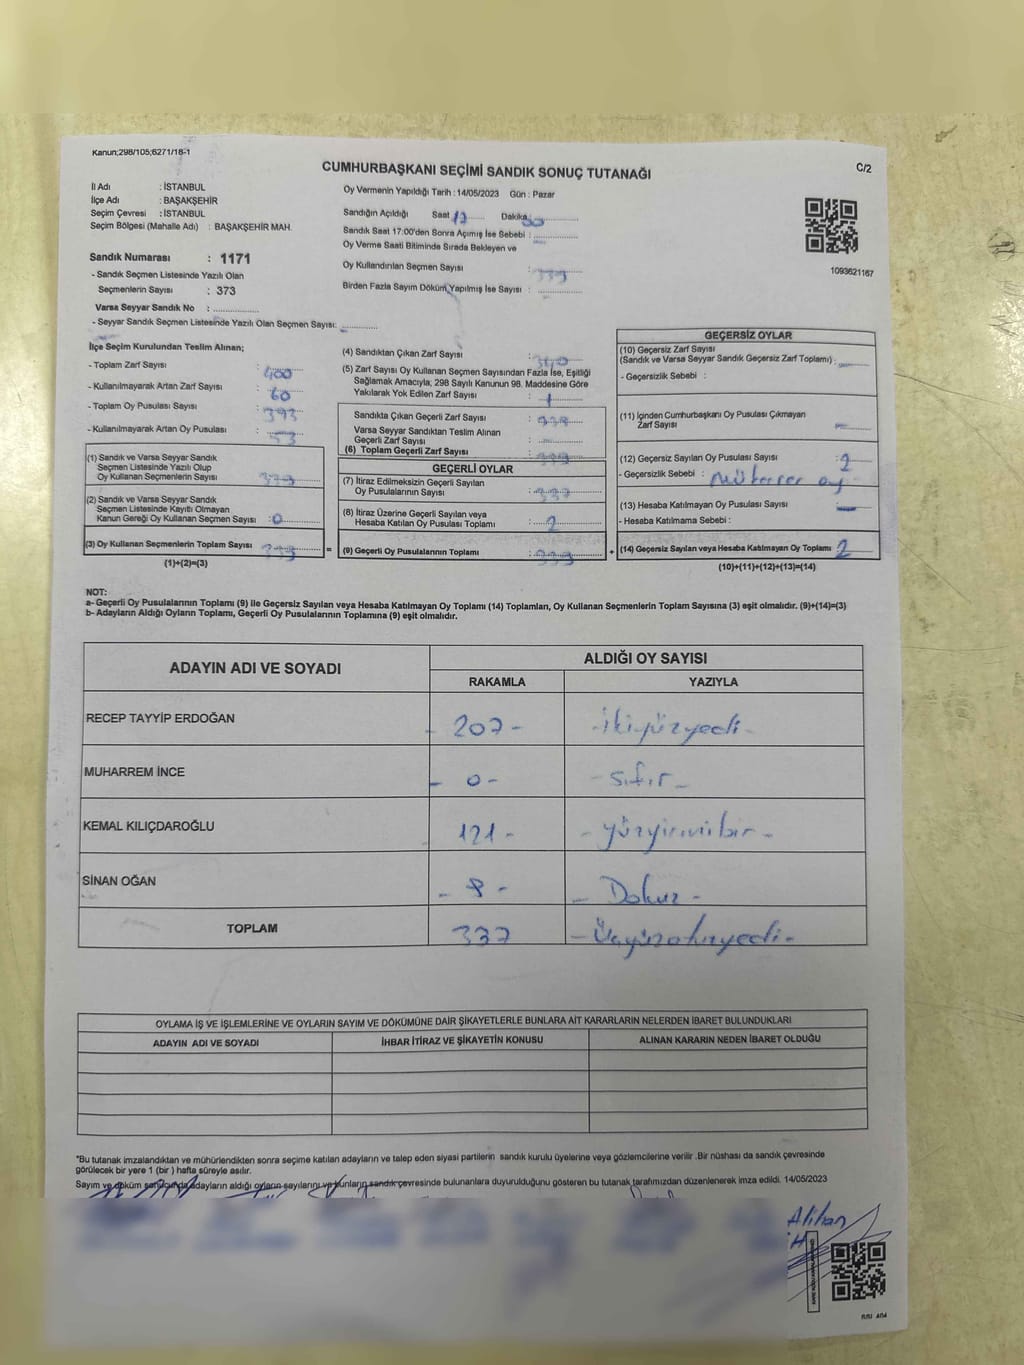 Kanun;298/105;6271/18-1
CUMHURBAŞKANI SEÇİMİ SANDIK SONUÇ TUTANAĞI
C/2
İl Adı : İSTANBUL
İlçe Adı : BAŞAKŞEHİR
Seçim Çevresi : İSTANBUL
Seçim Bölgesi (Mahalle Adı) : BAŞAKŞEHİR MAH.
Oy Vermenin Yapıldığı Tarih : 14/05/2023 Gün : Pazar
Sandığın Açıldığı Saat 17 Dakika
Sandık Saat 17:00'den Sonra Açmış İse Sebebi :
Oy Verme Saati Bitiminde Sırada Bekleyen ve
Oy Kullandırılan Seçmen Sayısı : 339
Birden Fazla Sayım Döküm Yapılmış İse Sayısı :
1093621167
Sandık Numarası : 1171
- Sandık Seçmen Listesinde Yazılı Olan
Seçmenlerin Sayısı : 373
Varsa Seyyar Sandık No :
- Seyyar Sandık Seçmen Listesinde Yazılı Olan Seçmen Sayısı:
İlçe Seçim Kurulundan Teslim Alınan;
- Toplam Zarf Sayısı : 400
- Kullanılmayarak Artan Zarf Sayısı : 60
- Toplam Oy Pusulası Sayısı : 393
- Kullanılmayarak Artan Oy Pusulası : 53
(1) Sandık ve Varsa Seyyar Sandık
Seçmen Listesinde Yazılı Olup
Oy Kullanan Seçmenlerin Sayısı : 339
(2) Sandık ve Varsa Seyyar Sandık
Seçmen Listesinde Kayıtlı Olmayan
Kanun Gereği Oy Kullanan Seçmen Sayısı : 0
(3) Oy Kullanan Seçmenlerin Toplam Sayısı 339
(1)+(2)=(3)
(4) Sandıktan Çıkan Zarf Sayısı : 340
(5) Zarf Sayısı Oy Kullanan Seçmen Sayısından Fazla İse, Eşitliği
Sağlamak Amacıyla; 298 Sayılı Kanunun 98. Maddesine Göre
Yakılarak Yok Edilen Zarf Sayısı : 1
Sandıkta Çıkan Geçerli Zarf Sayısı : 339
Varsa Seyyar Sandıktan Teslim Alınan
Geçerli Zarf Sayısı : -
(6) Toplam Geçerli Zarf Sayısı : 339
GEÇERLİ OYLAR
(7) İtiraz Edilmeksizin Geçerli Sayılan
Oy Pusulalarının Sayısı : 337
(8) İtiraz Üzerine Geçerli Sayılan veya
Hesaba Katılan Oy Pusulası Toplamı : 2
(9) Geçerli Oy Pusulalarının Toplamı : 339
GEÇERSİZ OYLAR
(10) Geçersiz Zarf Sayısı
(Sandık ve Varsa Seyyar Sandık Geçersiz Zarf Toplamı) : -
- Geçersizlik Sebebi :
(11) İçinden Cumhurbaşkanı Oy Pusulası Çıkmayan
Zarf Sayısı : -
(12) Geçersiz Sayılan Oy Pusulası Sayısı : 2
- Geçersizlik Sebebi : oy
(13) Hesaba Katılmayan Oy Pusulası Sayısı : -
- Hesaba Katılmama Sebebi :
(14) Geçersiz Sayılan veya Hesaba Katılmayan Oy Toplamı 2
(10)+(11)+(12)+(13)=(14)
NOT:
a- Geçerli Oy Pusulalarının Toplamı (9) ile Geçersiz Sayılan veya Hesaba Katılmayan Oy Toplamı (14) Toplamları, Oy Kullanan Seçmenlerin Toplam Sayısına (3) eşit olmalıdır. (9)+(14)=(3)
b- Adayların Aldığı Oyların Toplamı, Geçerli Oy Pusulalarının Toplamına (9) eşit olmalıdır.
ADAYIN ADI VE SOYADI
ALDIĞI OY SAYISI
RAKAMLA YAZIYLA
RECEP TAYYİP ERDOĞAN - 207 - - İkiyüzyedi -
MUHARREM İNCE - 0 - - sıfır -
KEMAL KILIÇDAROĞLU 121 - - yüzyirmibir -
SİNAN OĞAN - 9 - - Dokuz -
TOPLAM 337 - Üçyüzotuzyedi -
OYLAMA İŞ VE İŞLEMLERİNE VE OYLARIN SAYIM VE DÖKÜMÜNE DAİR ŞİKAYETLERLE BUNLARA AİT KARARLARIN NELERDEN İBARET BULUNDUKLARI
ADAYIN ADI VE SOYADI İHBAR İTİRAZ VE ŞİKAYETİN KONUSU ALINAN KARARIN NEDEN İBARET OLDUĞU
*Bu tutanak imzalandıktan ve mühürlendikten sonra seçime katılan adayların ve talep eden siyasi partilerin sandık kurulu üyelerine veya gözlemcilerine verilir .Bir nüshası da sandık çevresinde
görülecek bir yere 1 (bir ) hafta süreyle asılır.
Sayım ve döküm sonucunda adayların aldığı oyların sayılarını ve bunların sandık çevresinde bulunanlara duyurulduğunu gösteren bu tutanak tarafımızdan düzenlenerek imza edildi. 14/05/2023
Alihan